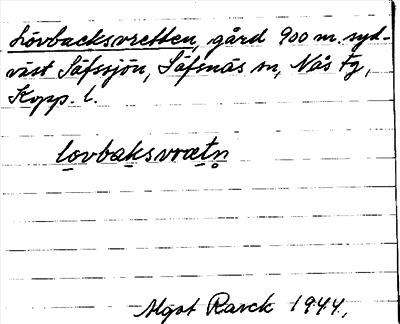 Lövbacksvretten, gård 900 m. syd-
väst Säfssjön, Säfsnäs sn, Nås tg,
Kopp. l.
lo̲vbaksvrætn̥
Algot Rarck 1944,